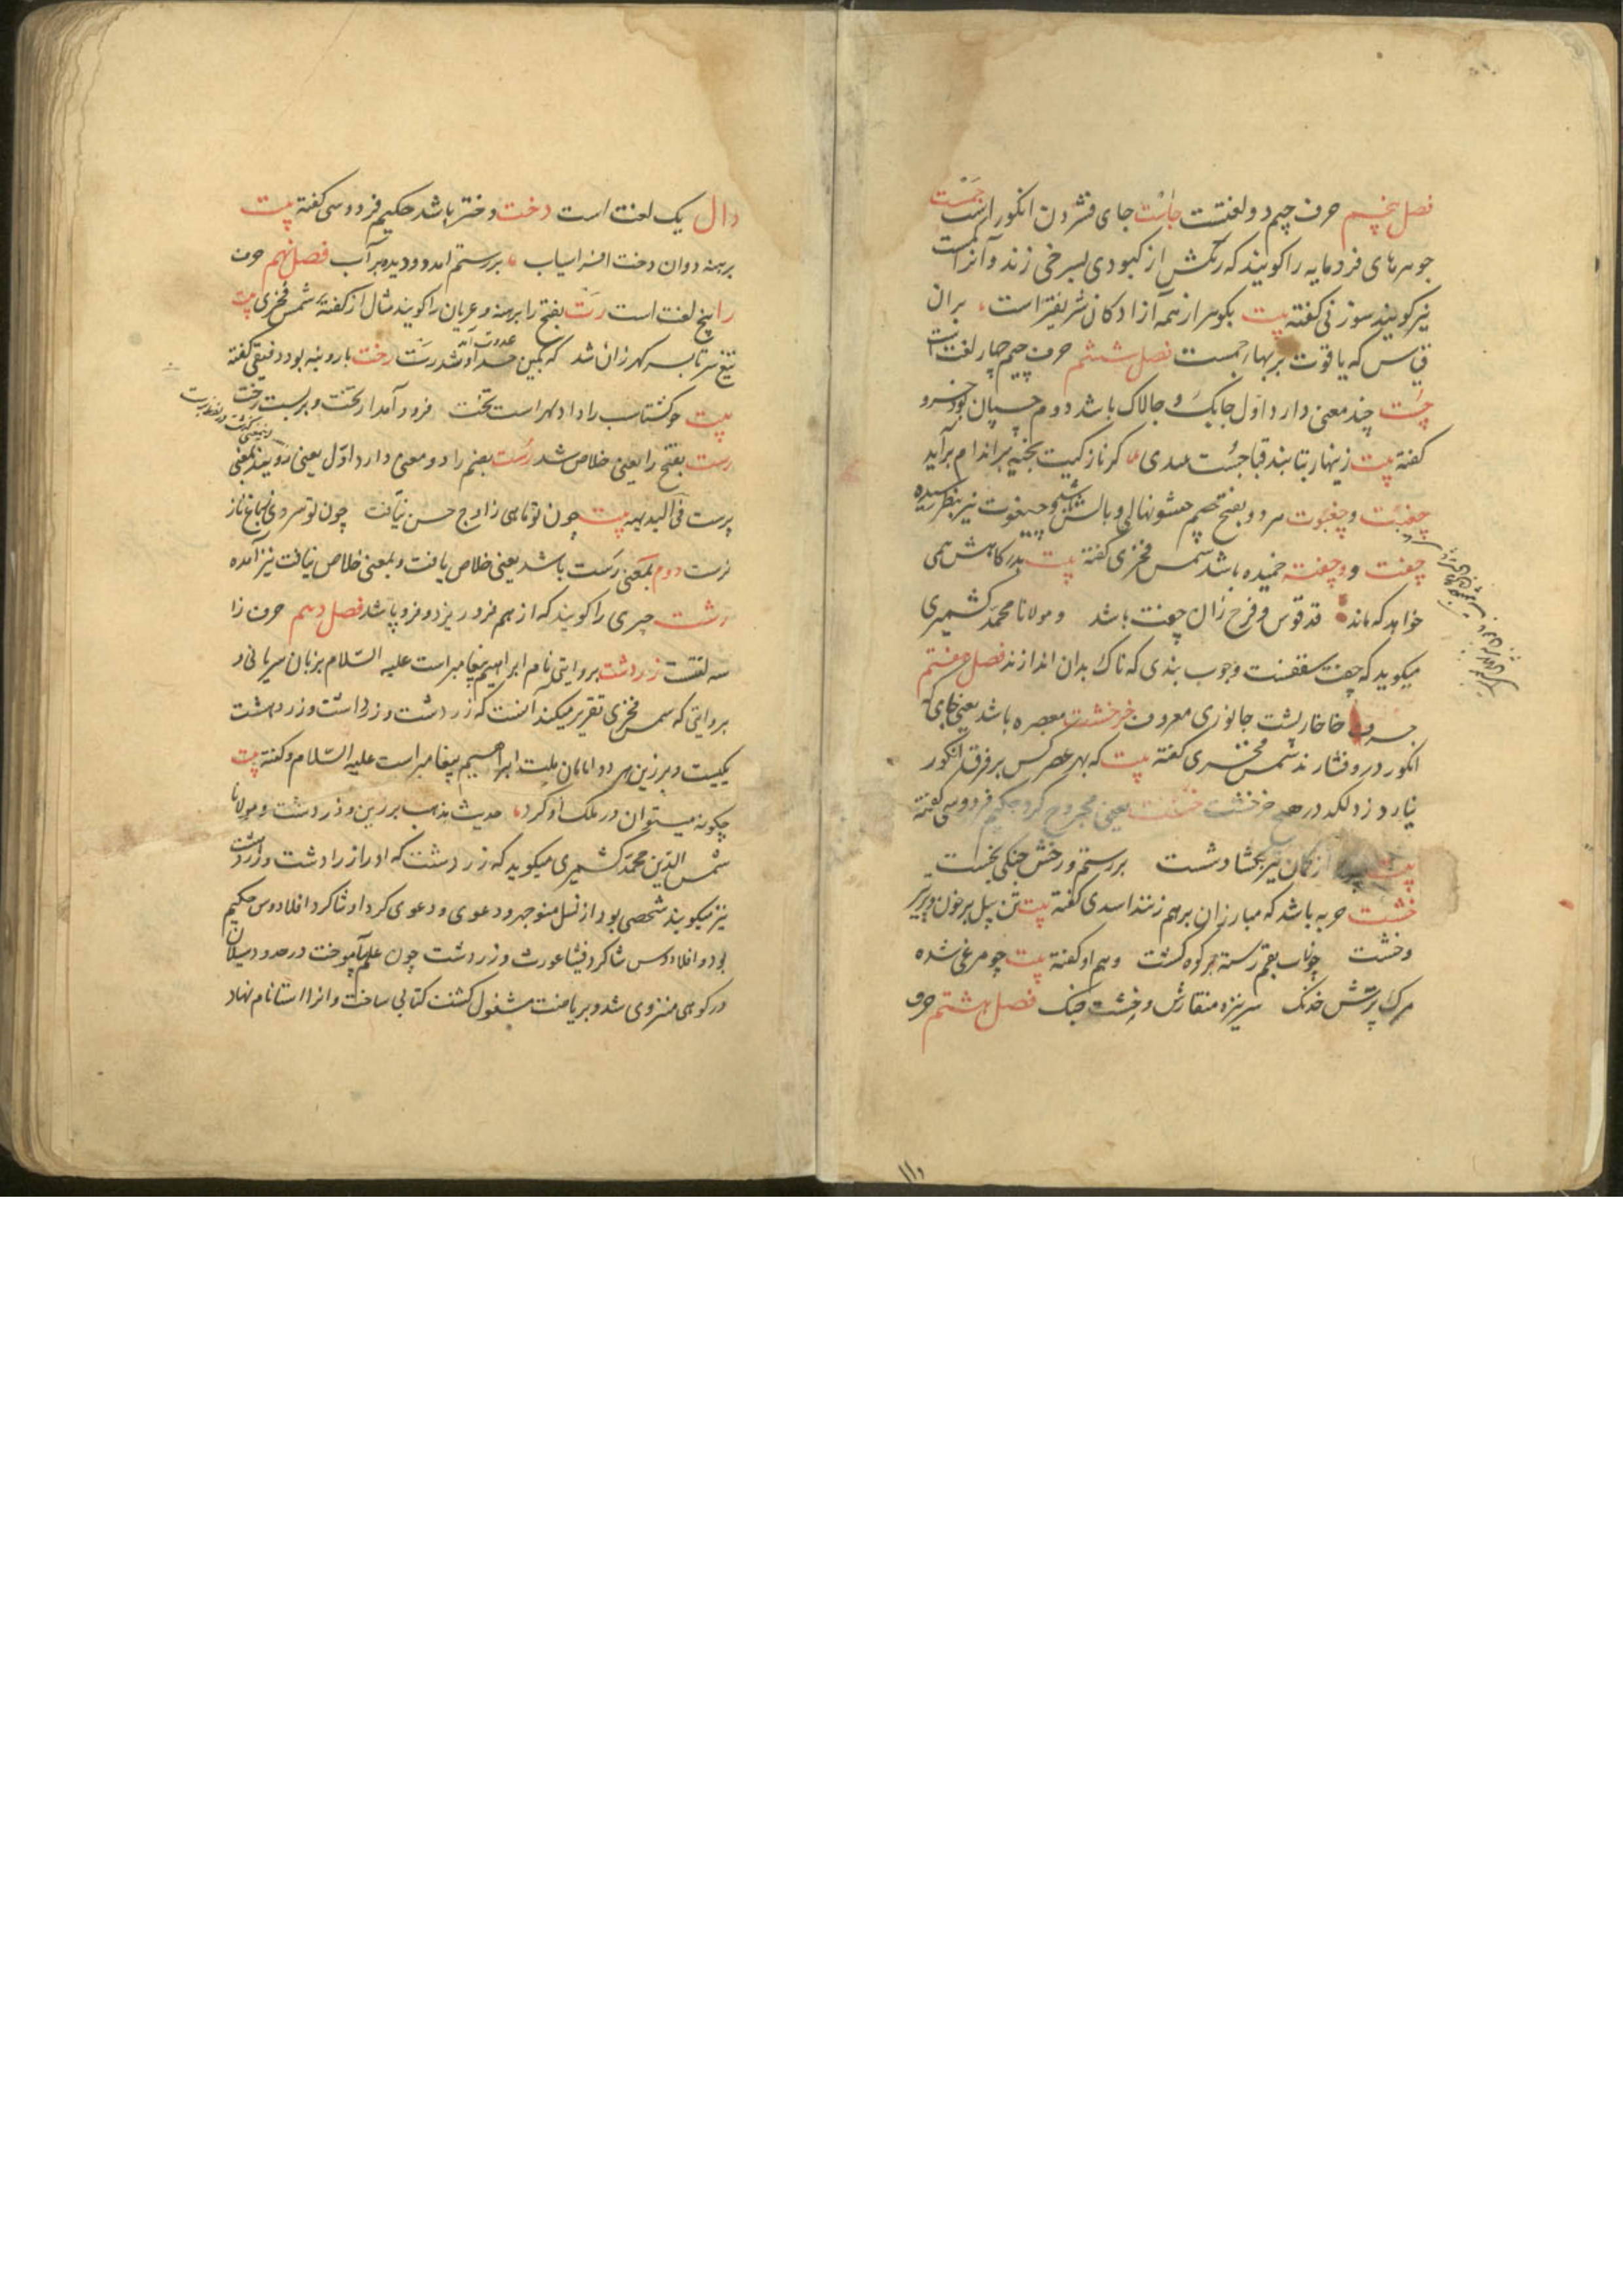 فصل پنجم حرف جیم دو لغتست جاست جای فشردن انکور است جمست
جوهرهای فرومایه را کویند که رنکش از کبودی بسرخی زند و آنرا
نیز کویند سوزنی کفته بیت بکوهر از همه آزادکان شریفتر است بر آن
قیاس که یاقوت بر بهار جمست فصل ششم حرف چیم چهار لغت است
چست چند معنی دارد اول چابک و چالاک باشد دوم چسپان بود خسرو
کفته بیت زینهار بتا بند قبا چست مبندی کز نازکیت بخیه بر اندام برآید
چغبت و چغبوت هر دو بفتح چیم حشو نهالی و بالش و چغوت نیز بنظر رسیده
چفت و چفته خمیده باشد شمس فخری کفته بیت بدر کاهش همی
خواهد که ماند قد قوس و قزح زان چفت باشد و مولانا محمد کشمیری
میکوید که چفت سقفست و چوب بندی که تاک بدان اندازند فصل هفتم
حرف خا خارپشت جانوری معروف خرخشت معصره باشد یعنی جایی که
انکور درو فشارند شمس فخری کفته بیت که بهر عصر کس بر فرق انکور
نیارد زد لکد در هیچ خرخشت خست یعنی مجروح کرد حکیم فردوسی کفته
بیت از کمان تیر بکشاد شست بر رستم و رخش جنکی بخست
خشت حربه باشد که مبارزان بر هم زنند اسدی کفته بیت تن پیل پر خون و پر تیر
و خشت چو آب بقم رسته بر کوه کشت و هم او کفته بیت چو مرغی شده
مرک پرش خدنک سر نیزه منقارش و خشت چنک فصل هشتم حرف
دال یک لغت است دخت دختر باشد حکیم فردوسی کفته بیت
برهنه دوان دخت افراسیاب بر رستم آمد دو دیده پر آب فصل نهم حرف
را پنج لغت است رت بفتح را برهنه و عریان را کویند مثال از کفته شمس فخری بیت
تیغ سر تا بسر کهر زان شد که بکین عدوت آمد رت رخت بار و بنه بود دقیقی کفته
بیت چو کشتاسب را داد لهراسب تخت فرود آمد از تخت و بربست رخت
رست بفتح را یعنی خلاص شد رست بضم را دو معنی دارد اول یعنی رویید بمعنی
پرست فی البدیهه بیت چون تو ماهی ز اوج حسن نیافت چون تو سروی بباغ ناز
نرست دوم بمعنی رست باشد یعنی خلاص یافت و بمعنی خلاص نیافت نیز آمده
رشت چیزی را کویند که از هم فرو ریزد و فرو پاشد فصل دهم حرف زا
سه لغتست زردشت بروایتی نام ابراهیم پیغامبر است علیه السلام بزبان سریانی و
بروایتی که شمس فخری تقریر میکند آنست که زردشت و زرداشت و زردهشت
یکیست و برزین هر دو امامان ملت ابراهیم پیغامبر است علیه السلام و کفته بیت
چکونه میتوان در ملک او کرد حدیث مذهب برزین و زردشت و مولانا
شمس الدین محمد کشمیری میکوید که زردشت که او را زرادشت و زردشت
نیز میکویند شخصی بود از نسل منوجهر و دعوی کرد او شاکرد افلادوس حکیم
بود و افلادوس شاکرد فیثاغورث و زردشت چون علم بیاموخت در حدود سبلان
در کوهی منزوی شد و بریاضت مشغول کشت کتابی ساخت و آنرا استا نام نهاد